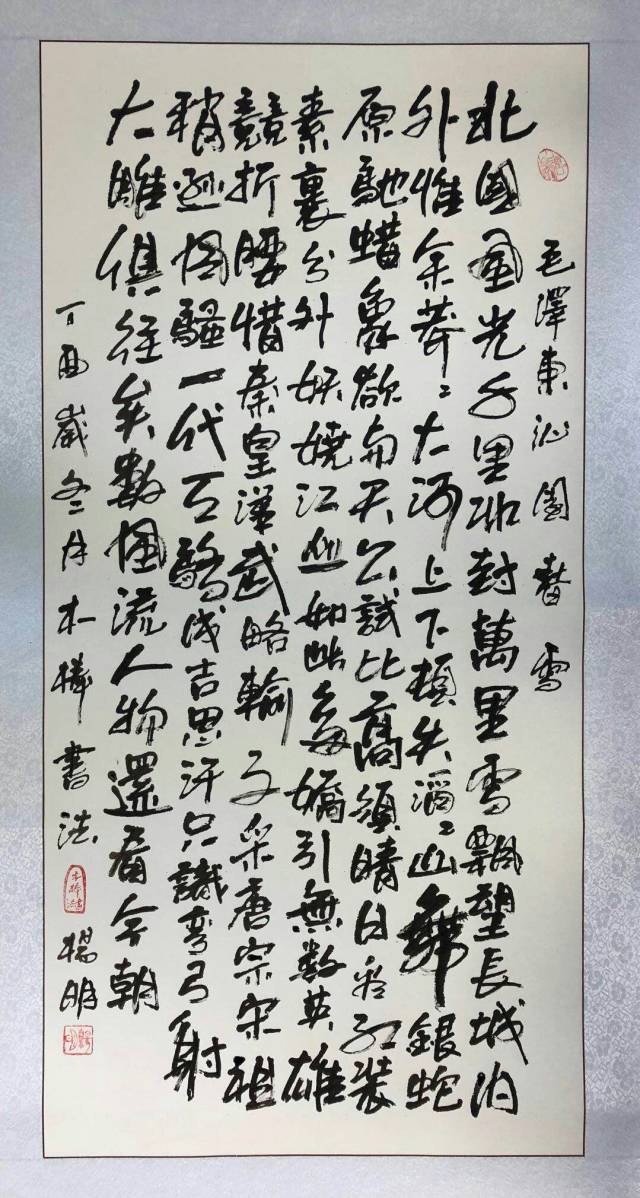 毛澤東沁園春 雪
北國風光千里冰封萬里雪飄望長城内
外惟余莽々大河上下頓失滔々山舞銀蛇
原馳蜡象欲與天公試比高須晴日看紅裝
素裹分外妖嬈江山如此多嬌引無數英雄
競折腰惜秦皇漢武略輸文采唐宗宋祖
稍遜風騷一代天驕成吉思汗只識彎弓射
大雕俱往矣數風流人物還看今朝
丁酉歲冬月木樺書法 楊明